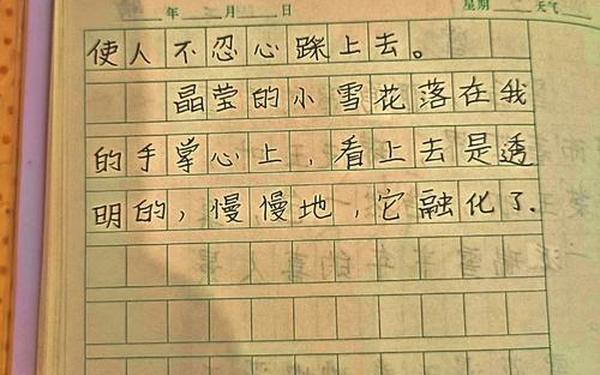 年 月 日 星期 天气
使人不忍心踩上去。
晶莹的小雪花落在我
的手掌心上，看上去是透
明的，慢慢地，它融化了.